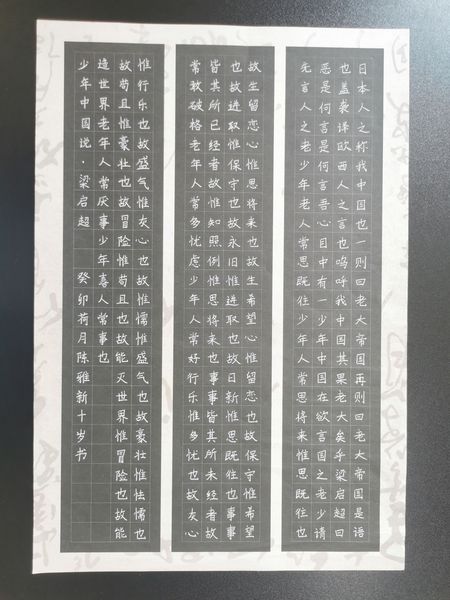 日本人之称我中国也一则曰老大帝国再则曰老大帝国是语
也盖袭译欧西人之言也呜呼我中国其果老大矣乎梁启超曰
恶是何言是何言吾心目中有一少年中国在欲言国之老少请
先言人之老少年老人常思既往少年人常思将来惟思既往也
故生留恋心惟思将来也故生希望心惟留恋也故保守惟希望
也故进取惟保守也故永旧惟进取也故日新惟思既往也事事
皆其所已经者故惟知照例惟思将来也事事皆其所未经者故
常敢破格老年人常多忧虑少年人常好行乐惟多忧也故灰心
惟行乐也故盛气惟灰心也故惟懦惟盛气也故豪壮惟怯懦也
故苟且惟豪壮也故冒险惟苟且也故能灭世界惟冒险也故能
造世界老年人常厌事少年喜人常事也
少年中国说·梁启超 癸卯荷月陈雅新十岁书